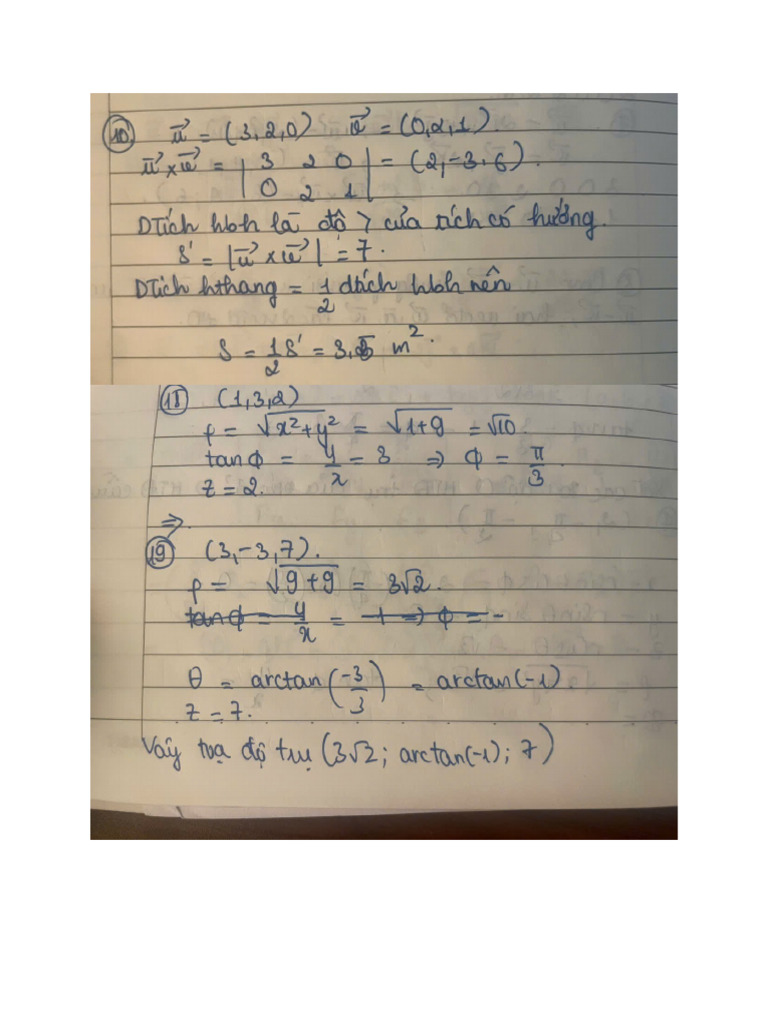 10. u⃗ = (3,2,0) v⃗ = (0,2,1).
u⃗ × v⃗ = | 3 2 0 | = (2,-3,6).
| 0 2 1 |
DTích hbh là độ > của tích có hướng.
S' = |u⃗ × v⃗| = 7.
DTích hthang = 1/2 dtích hbh nên
S = 1/2 S' = 3,5 m²
(1,3,2)
ρ = √(x²+y²) = √(1+9) = √10
tan ϕ = y/x = 3 ⇒ ϕ = π/3.
z = 2.
⇒
19 (3,-3,7).
ρ = √(9+9) = 3√2.
tan ϕ = y/x = -1 ⇒ ϕ = -
θ = arctan(-3/3) = arctan(-1)
z = 7.
Vậy toạ độ trụ (3√2; arctan(-1); 7)